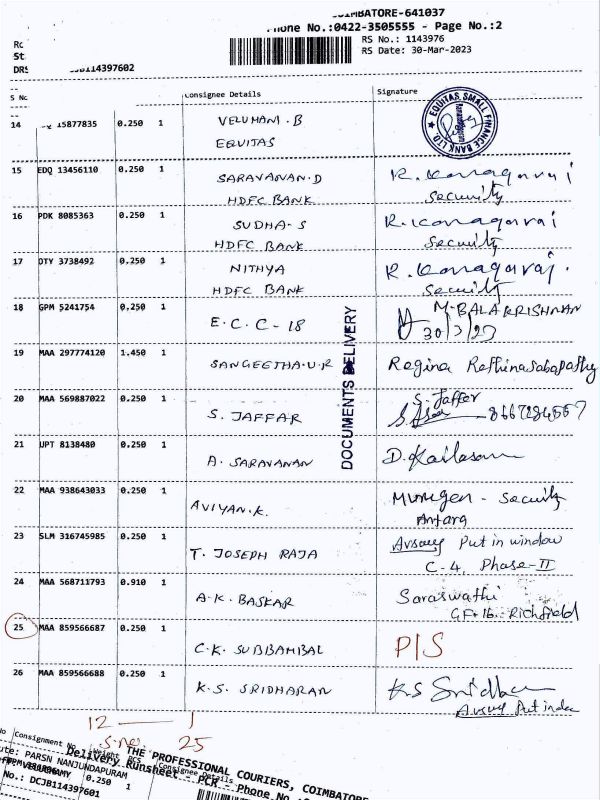 COIMBATORE-641037
Phone No.:0422-3505555 - Page No.:2
RS No.: 1143976
RS Date: 30-Mar-2023
JB114397602
S No Consignee Details Signature
EQUITAS SMALL FINANCE BANK LTD
14 15877835 0.250 1 VELUMANI.B
EQUITAS
15 EDQ 13456110 0.250 1 SARAVANAN.D R. Kanagaraj
HDFC BANK Security
16 PDK 8085363 0.250 1 SUDHA-S R. Kanagaraj
HDFC BANK Security
17 DTY 3738492 0.250 1 NITHYA R. Kanagaraj.
HDFC BANK Security
18 GPM 5241754 0.250 1 E.C.C-18 M-BALAKRISHNAN
30/3/23
DOCUMENTS DELIVERY
19 MAA 297774120 1.450 1 SANGEETHA.U.R Regina Rethinasabapathy
20 MAA 569887022 0.250 1 S. JAFFAR S. Jaffer
21 UPT 8138480 0.250 1 A. SARAVANAN D. Kailasam
22 MAA 938643033 0.250 1 AVIYAN.K. Murugen - Security
Antara
23 SLM 316745985 0.250 1 T. JOSEPH RAJA Put in window
C-4, Phase-II
24 MAA 568711793 0.910 1 A.K. BASKAR Saraswathi
Richfield
25 MAA 859566687 0.250 1 C.K. SUBBAMBAL P/S
26 MAA 859566688 0.250 1 K.S. SRIDHARAN K.S Sridharan
12 — 1
S.no. 25
THE PROFESSIONAL COURIERS, COIMBATORE
Delivery Runsheet - PCR - Phone No.
No Consignment No. Weight PCS Consignee Details
Route: PARSN NANJUNDAPURAM
0.250 1
No.: DCJB114397601